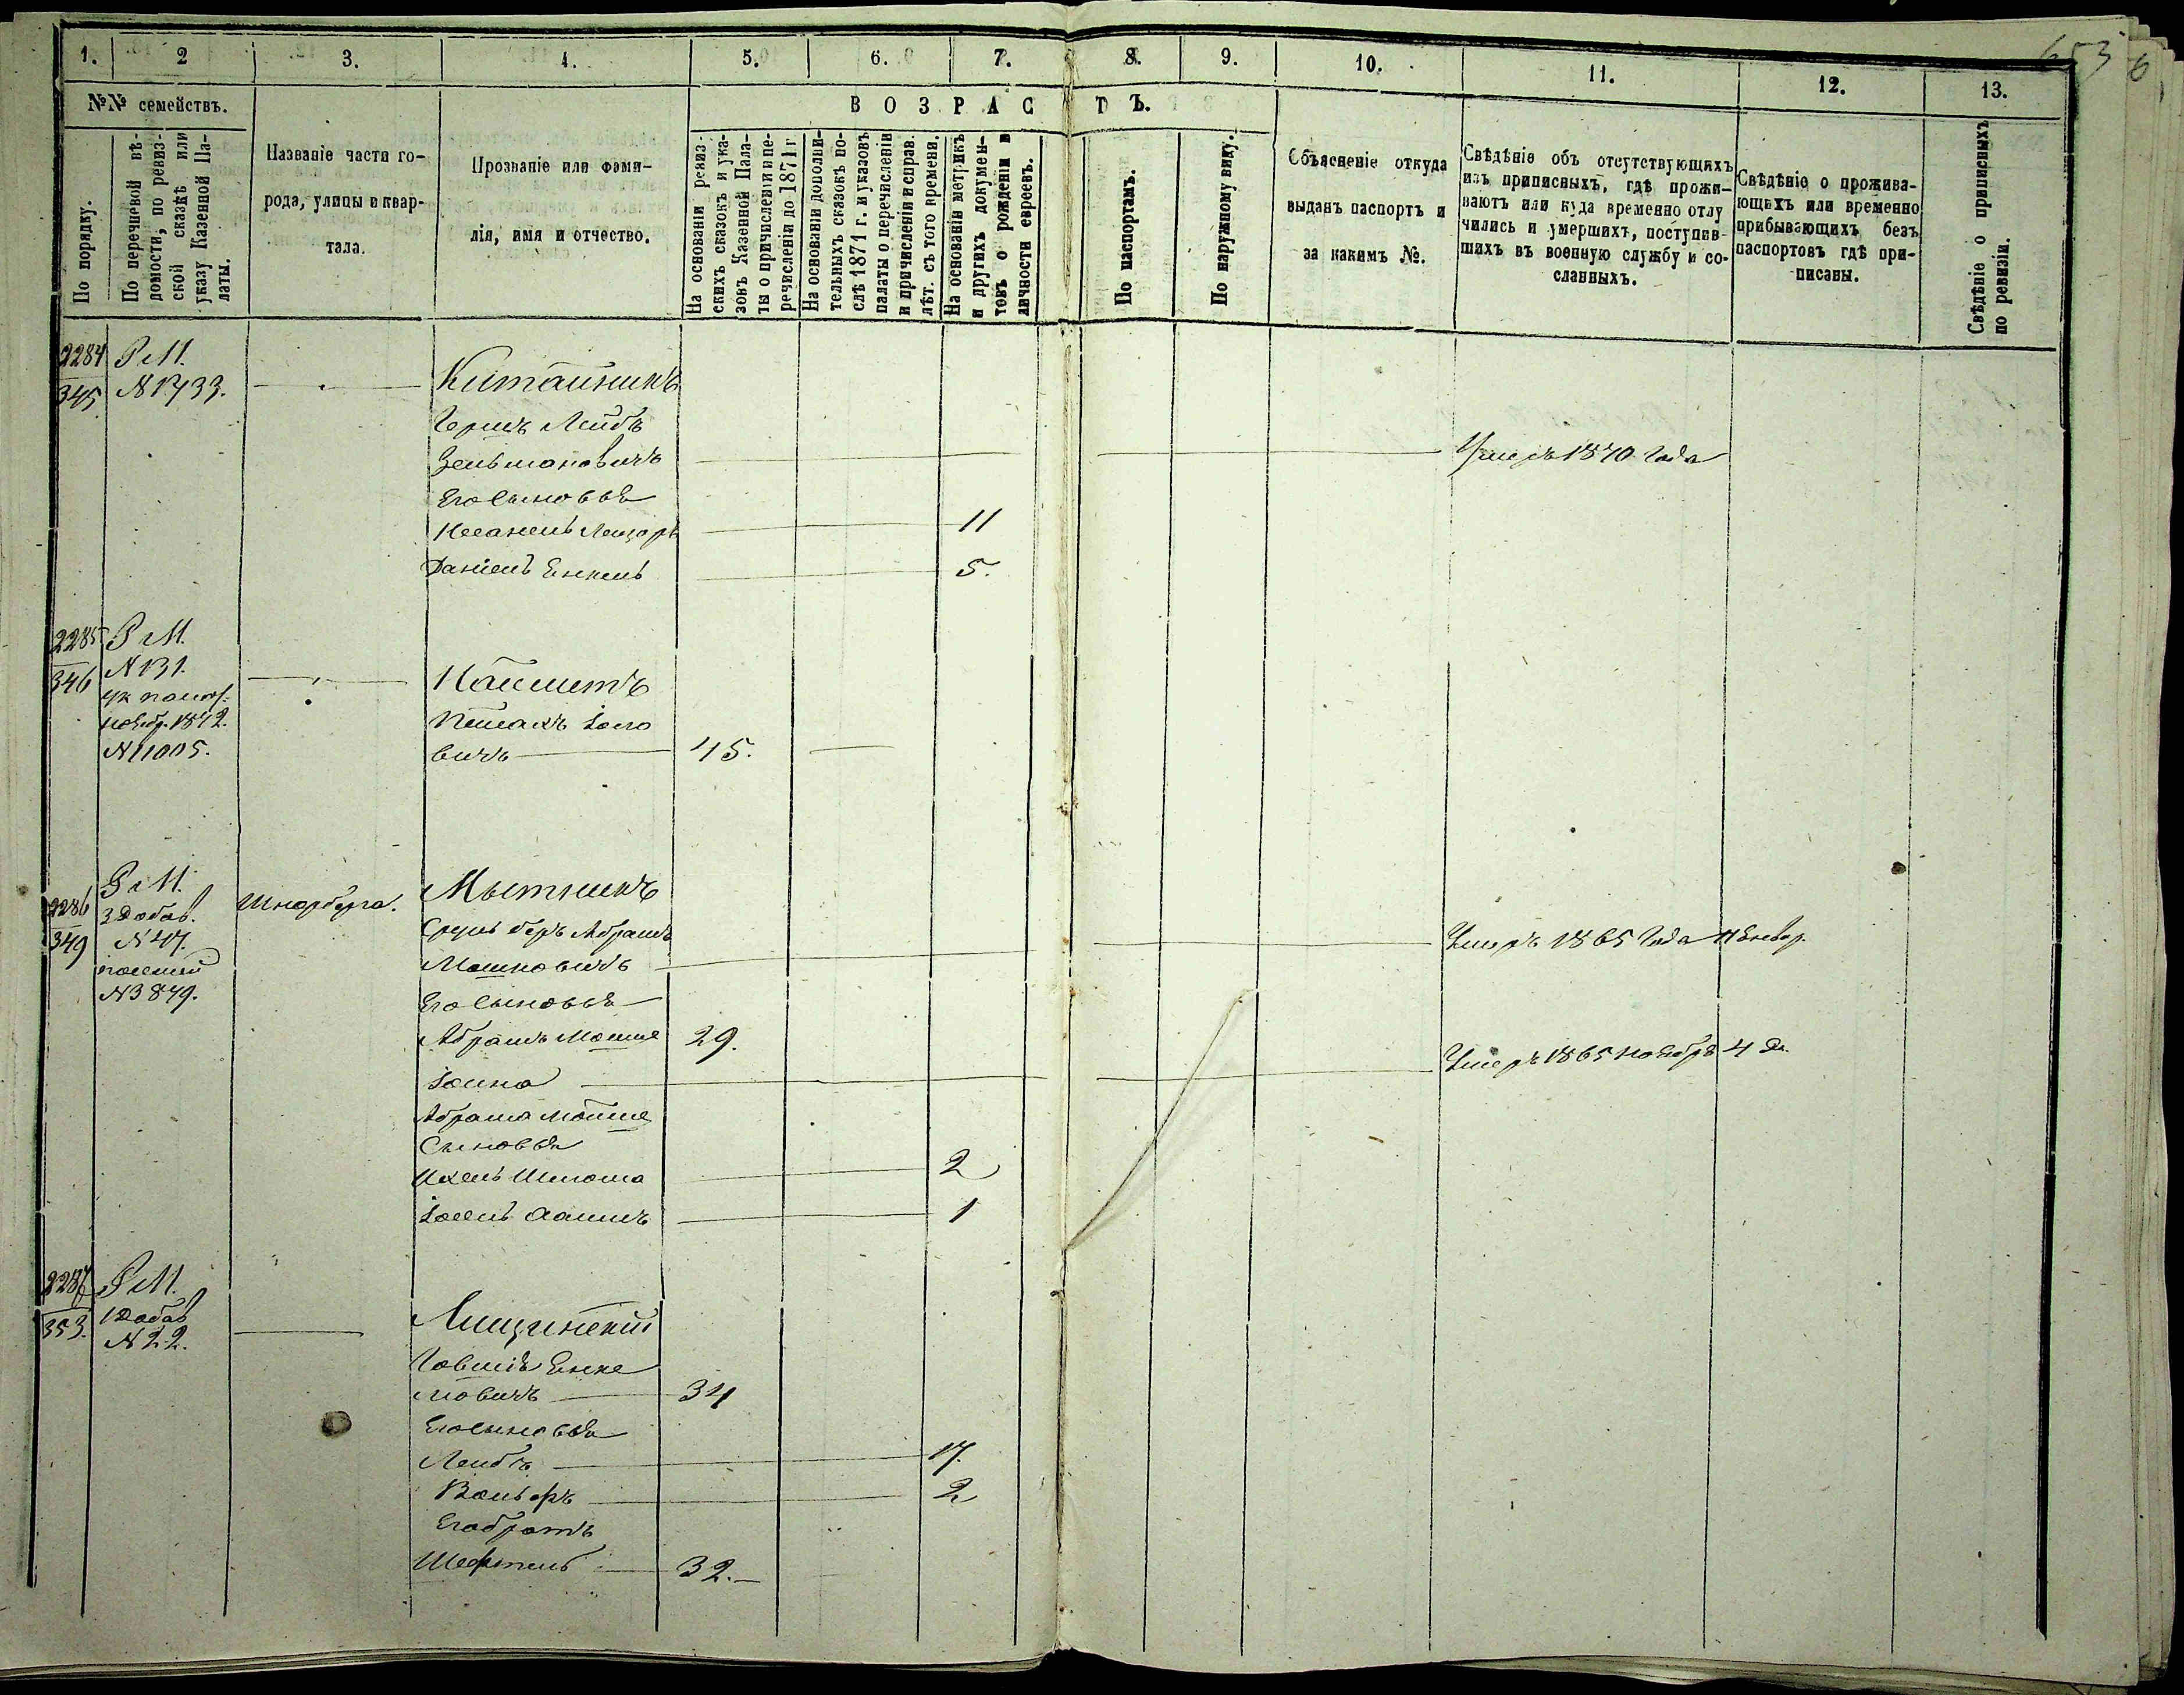 653
6
1. 2 3. 4. 5. 6. 7. 8. 9. 10. 11. 12. 13.
№№ семействъ.
По порядку.
По перечневой вѣ-
домости, по ревиз-
ской сказкѣ или
указу Казенной Па-
латы.
Названіе части го-
рода, улицы и квар-
тала.
Прозваніе или фами-
лія, имя и отчество.
ВОЗРАСТЪ.
На основаніи ревиз-
скихъ сказокъ и ука-
зовъ Казенной Пала-
ты о причисленіи и пе-
речисленіи до 1871 г
На основаніи дополни-
тельныхъ сказокъ по-
слѣ 1871 г. и указовъ
палаты о перечисленіи
и причисленіи и справ.
лѣт. съ того времени.
На основаніи метрикъ
и другихъ докумен-
товъ о рожденіи и
личности евреевъ.
По паспортамъ.
По наружному виду.
Объясненіе откуда
выданъ паспортъ и
за какимъ №.
Свѣдѣніе объ отсутствующихъ
изъ приписныхъ, гдѣ прожи-
ваютъ или куда временно отлу
чились и умершихъ, поступив-
шихъ въ военную службу и со-
сланныхъ.
Свѣдѣніе о прожива-
ющихъ или временно
прибывающихъ безъ
паспортовъ гдѣ при-
писаны.
Свѣдѣніе о приписныхъ
по ревизіи.
2284 Р М. Китайникъ
345 N 1733.
Гершъ Лейбъ
Зельмановичъ Умеръ 1870 Года
Его Сыновья
11
Даніель Енкель 5.
2285 Р М.
346 N 131.
Ноябр. 1872.
N 11005.
вичъ 45.
2286 Р М. Мытникъ
349 3 Добав.
N 47.
Сруль Беръ Абрамъ
Мошковичъ Умеръ 1865 Года 11 Январ.
N 3879.
Его Сыновья
Абрамъ Мошко 29.
Іосио Умеръ 1865 Ноября 4 д.
Абрама Мошко
Сыновья
Ихель Шлома 2
1
2287 Р М. Лищинскій
353. 1 Добав
N 22.
Говшія Енке
левичъ 34
Его сыновья
Лейбъ 17.
Вольфъ 2
Его братъ
Шефтель 32.